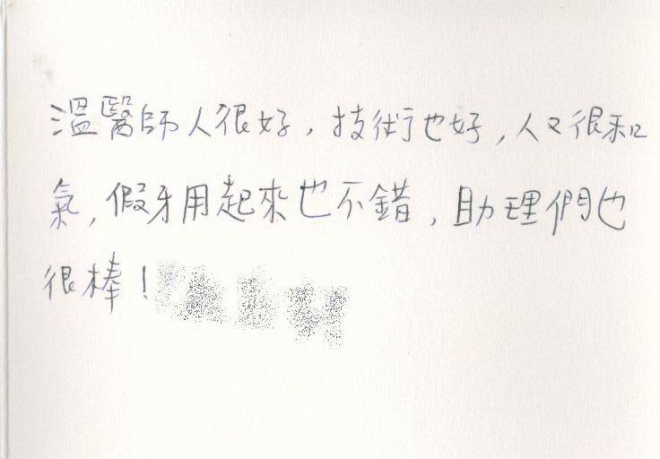 溫醫師人很好，技術也好，人又很和
氣，假牙用起來也不錯，助理們也
很棒！